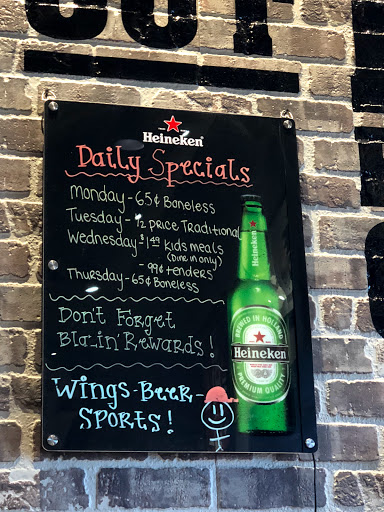 OUT
Heineken
Daily Specials
Monday - 65¢ Boneless
Tuesday - ½ price Traditional
Wednesday - $1.49 kids meals
(Dine in only)
- 99¢ tenders
Thursday - 65¢ Boneless
Don't Forget
Blazin' Rewards!
Wings-Beer-
Sports!
Heineken
BREWED IN HOLLAND
Heineken
PREMIUM QUALITY